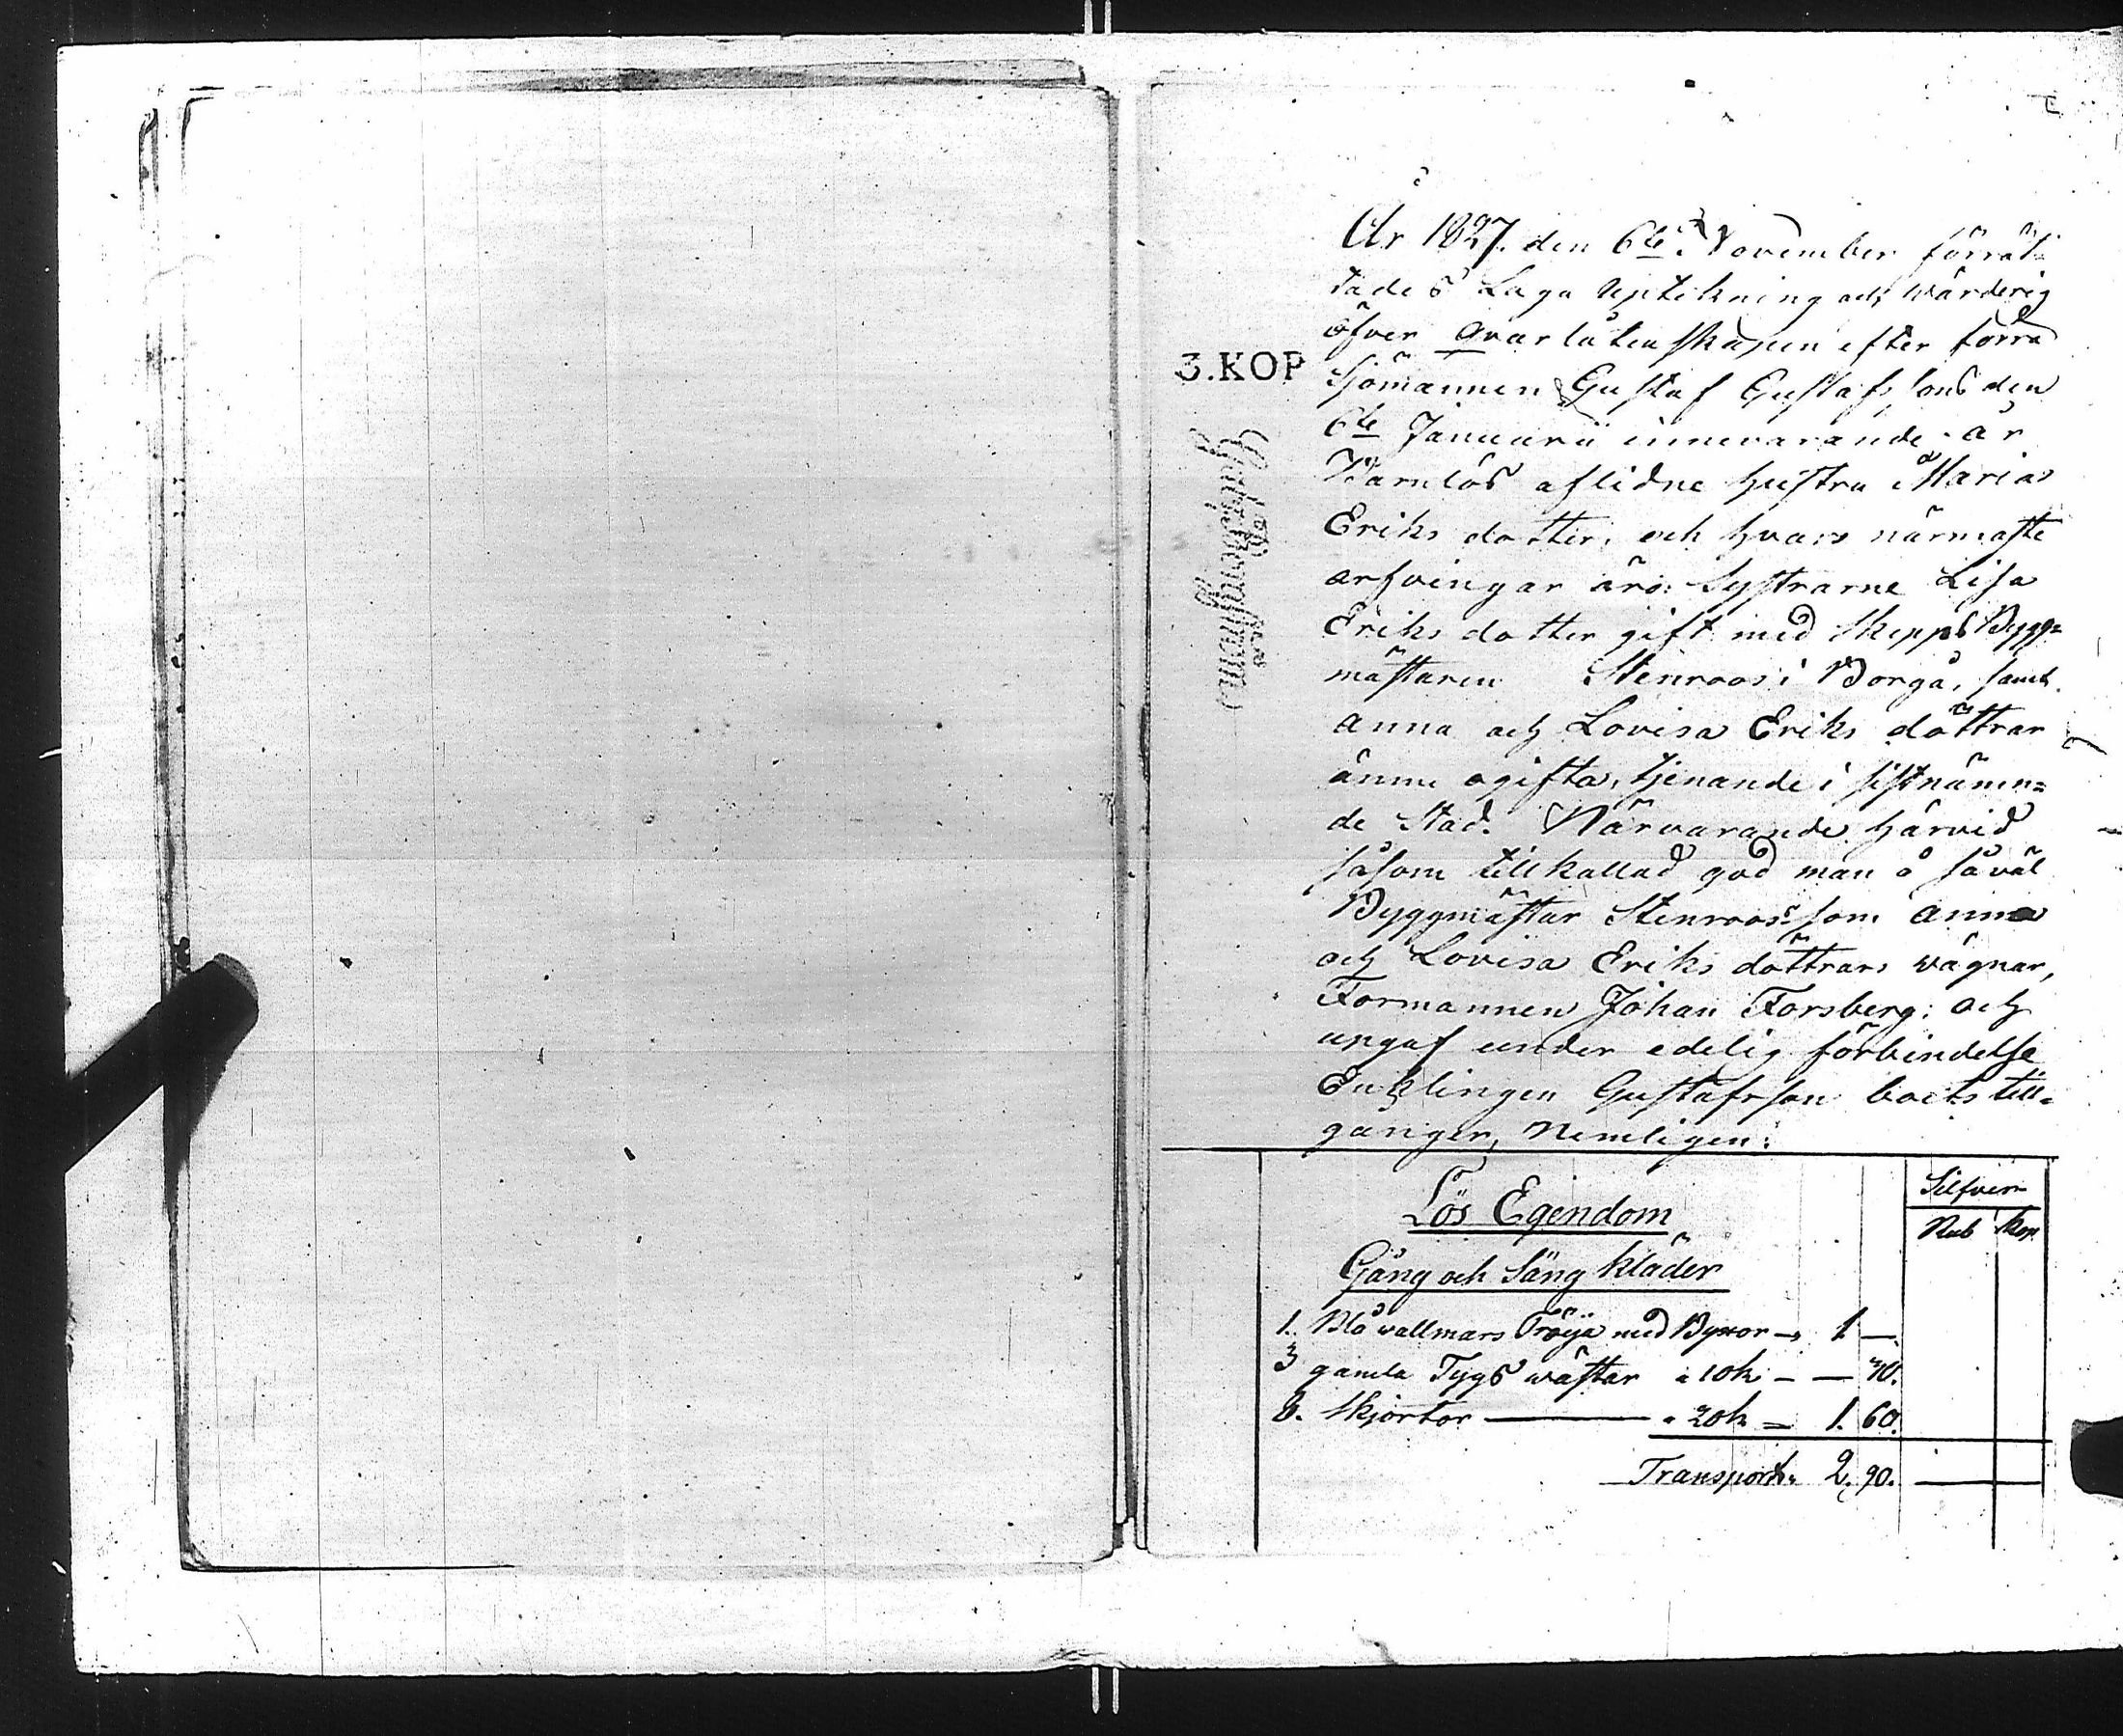 År 1827. den 6te November förrät-
tades Laga Uptekning och wärderig
öfver Qvarlåtenskapen efter förra
3.KOP
Sjömannen Gustaf Gustafssons den
6te Januarii innevarande år
Barnlös aflidne hustru Maria
Eriksdotter, och hvars närmaste
arfvingar äro: Systrarne Lisa
Eriks dotter gift med Skepps Bygg=
mästaren Stenroos i Borgå, samt
Anna och Lovisa Eriks döttrar
ännu ogifta, tjenande i sistnämn=
de Stad. Närvarande härvid
såsom tillkallad god man å såväl
Byggmästar Stenroos som Anna
och Lovisa Eriks döttrars wägnar,
Formannen Johan Forsberg; och
upgaf under edelig förbindelse
Enklingen Gustafsson boets till=
gånger, Nemligen:
Lös Egendom
Silfver
Rub Kop.
Gång och Säng kläder
1. Blå vallmars Tröija med Byxor - 1 -
3 gamla Tygs wästar a 10k - - 30.
8. Skjortor a 20k - 1. 60.
Transport 2. 90.